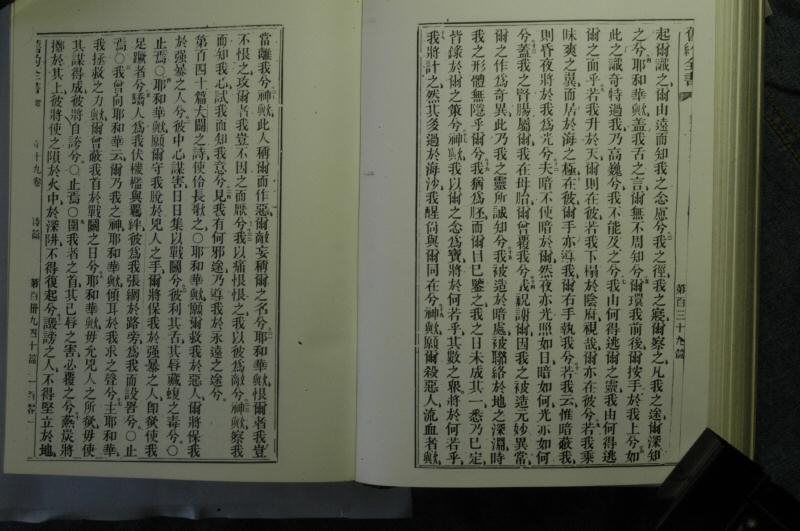 舊約全書
第百三十九篇
起爾識之爾由遠而知我之念慮兮我之徑我之寢爾察之凡我之途爾深知
之兮耶和華歟蓋我舌之言爾無不周知兮爾環我前後爾按手於我上兮如
此之識奇特過我乃高巍兮我不能及之兮我由何得逃爾之靈我由何得逃
爾之面乎若我升於天爾則在彼若我下榻於陰府視哉爾亦在彼兮若我乘
昧爽之翼而居於海之極在彼爾手亦導我爾右手執我兮若我云惟暗蔽我
則昏夜將於我為光兮夫暗不使暗於爾然夜亦光照如日暗如何光亦如何
兮蓋我之腎腸屬爾我在母胎爾曾覆我兮我祝謝爾因我之被造元妙異常
爾之作為奇異此乃我之靈所誠知兮我被造於暗處被聯絡於地之深淵時
我之形體無隱乎爾兮我猶為胚而爾目已鑒之我之日未成其一悉乃已定
皆錄於爾之策兮神歟我以爾之念為寶將於何若乎其數之衆將於何若乎
我將計之然其多過於海沙我醒尚與爾同在兮神歟願爾殺惡人流血者歟
當離我兮神歟此人稱爾而作惡爾敵妄稱爾之名兮耶和華歟恨爾者我豈
不恨之攻爾者我豈不因之而厭兮我以痛恨恨之我以彼為敵兮神歟察我
而知我心試我而知我意兮見我有何邪途乃導我於永遠之途兮
第百四十篇大闢之詩使伶長歌之〇耶和華歟願爾救我於惡人爾將保我
於強暴之人兮彼中心謀害日日集以戰鬬兮彼利其舌其唇藏蝮之毒兮〇
止焉〇耶和華歟願爾守我脫於兇人之手爾將保我於強暴之人卽欲使我
足蹶者兮驕人為我伏機檻與羈絆彼為我張網於路旁為我而設罟兮〇止
焉〇我曾向耶和華云爾乃我之神耶和華歟傾耳於我求之聲兮主耶和華
我拯救之力歟爾曾蔽我首於戰鬬之日兮耶和華歟毋允兇人之所欲毋使
其謀得成彼將自誇兮〇止焉〇圍我者之首其己唇之害必覆之兮燕炭將
擲於其上彼將使之隕於火中於深阱不得復起兮謗讟之人不得堅立於地
舊約全書
十九卷
詩篇
第百卅九四十篇
一百零一